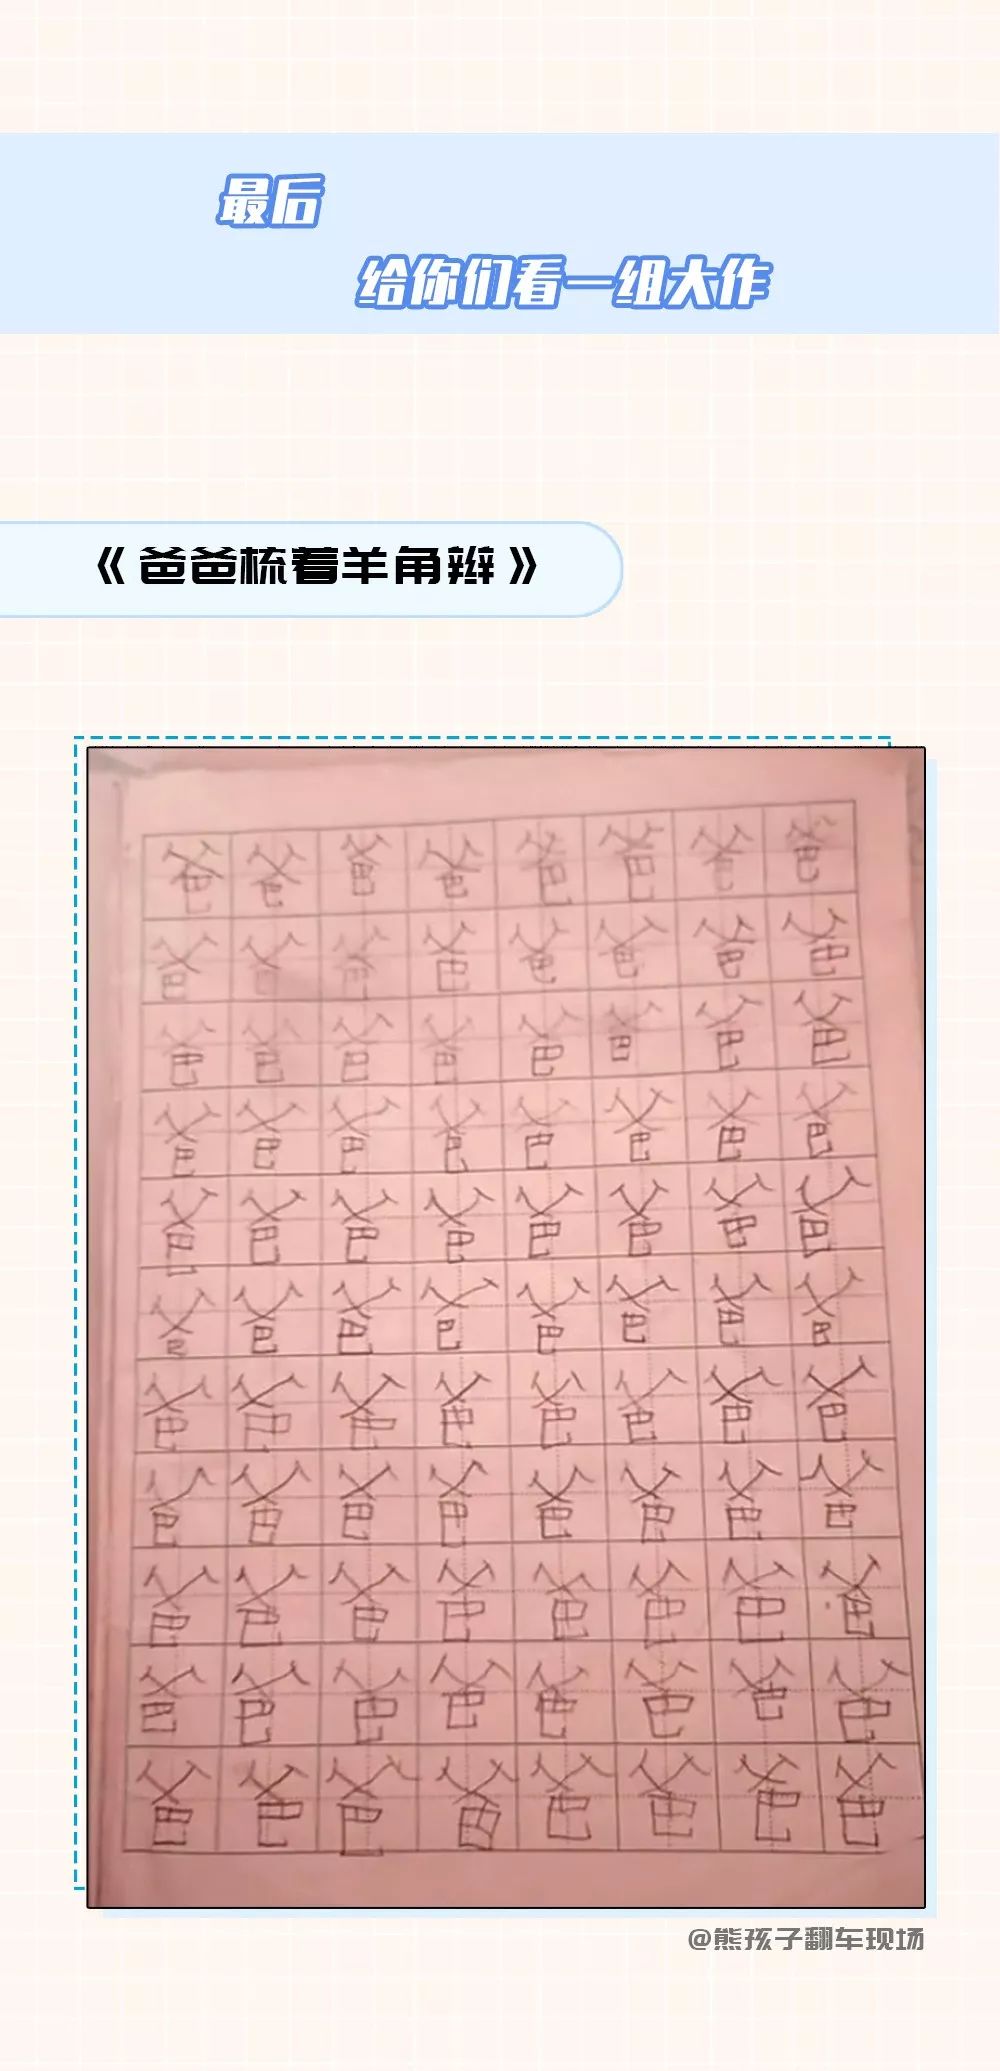 最后
给你们看一组大作
《爸爸梳着羊角辫》
爸爸爸爸爸爸爸爸
爸爸爸爸爸爸爸爸
爸爸爸爸爸爸爸爸
爸爸爸爸爸爸爸爸
爸爸爸爸爸爸爸爸
爸爸爸爸爸爸爸爸
爸爸爸爸爸爸爸爸
爸爸爸爸爸爸爸爸
爸爸爸爸爸爸爸爸
爸爸爸爸爸爸爸爸
爸爸爸爸爸爸爸爸
@熊孩子翻车现场